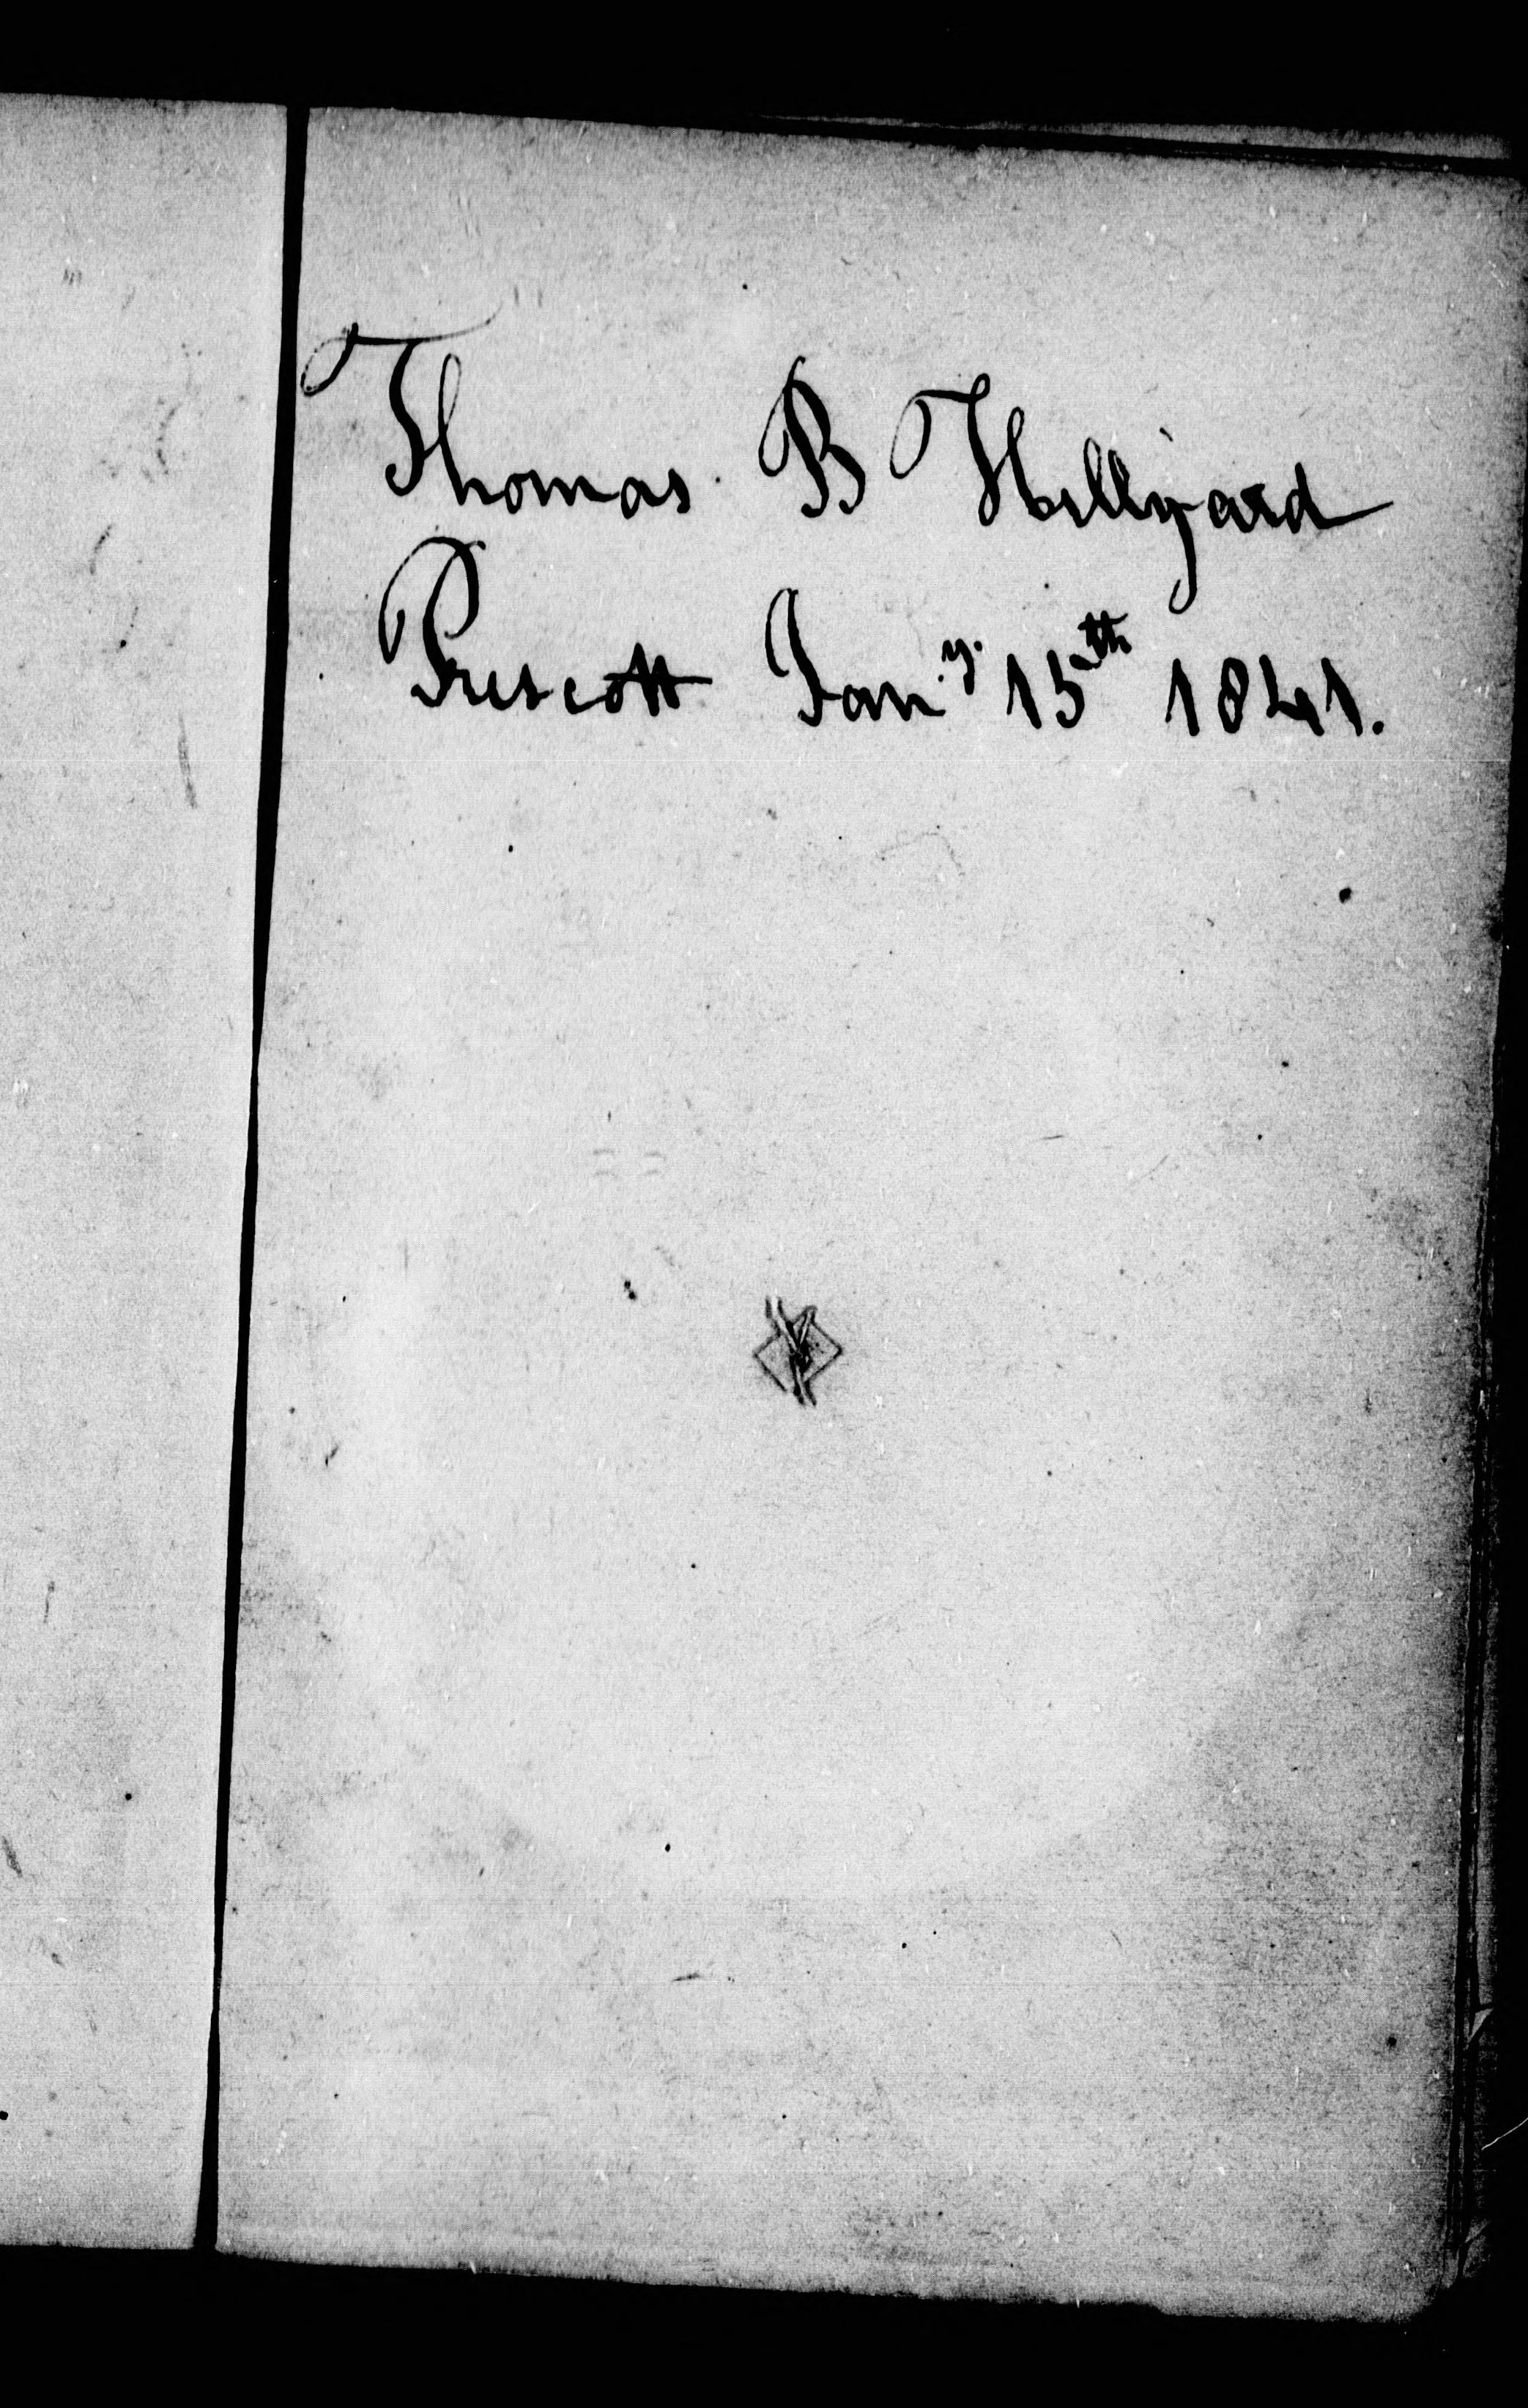 Thomas B Hillyard
Prescott Jan.y. 15th 1841.